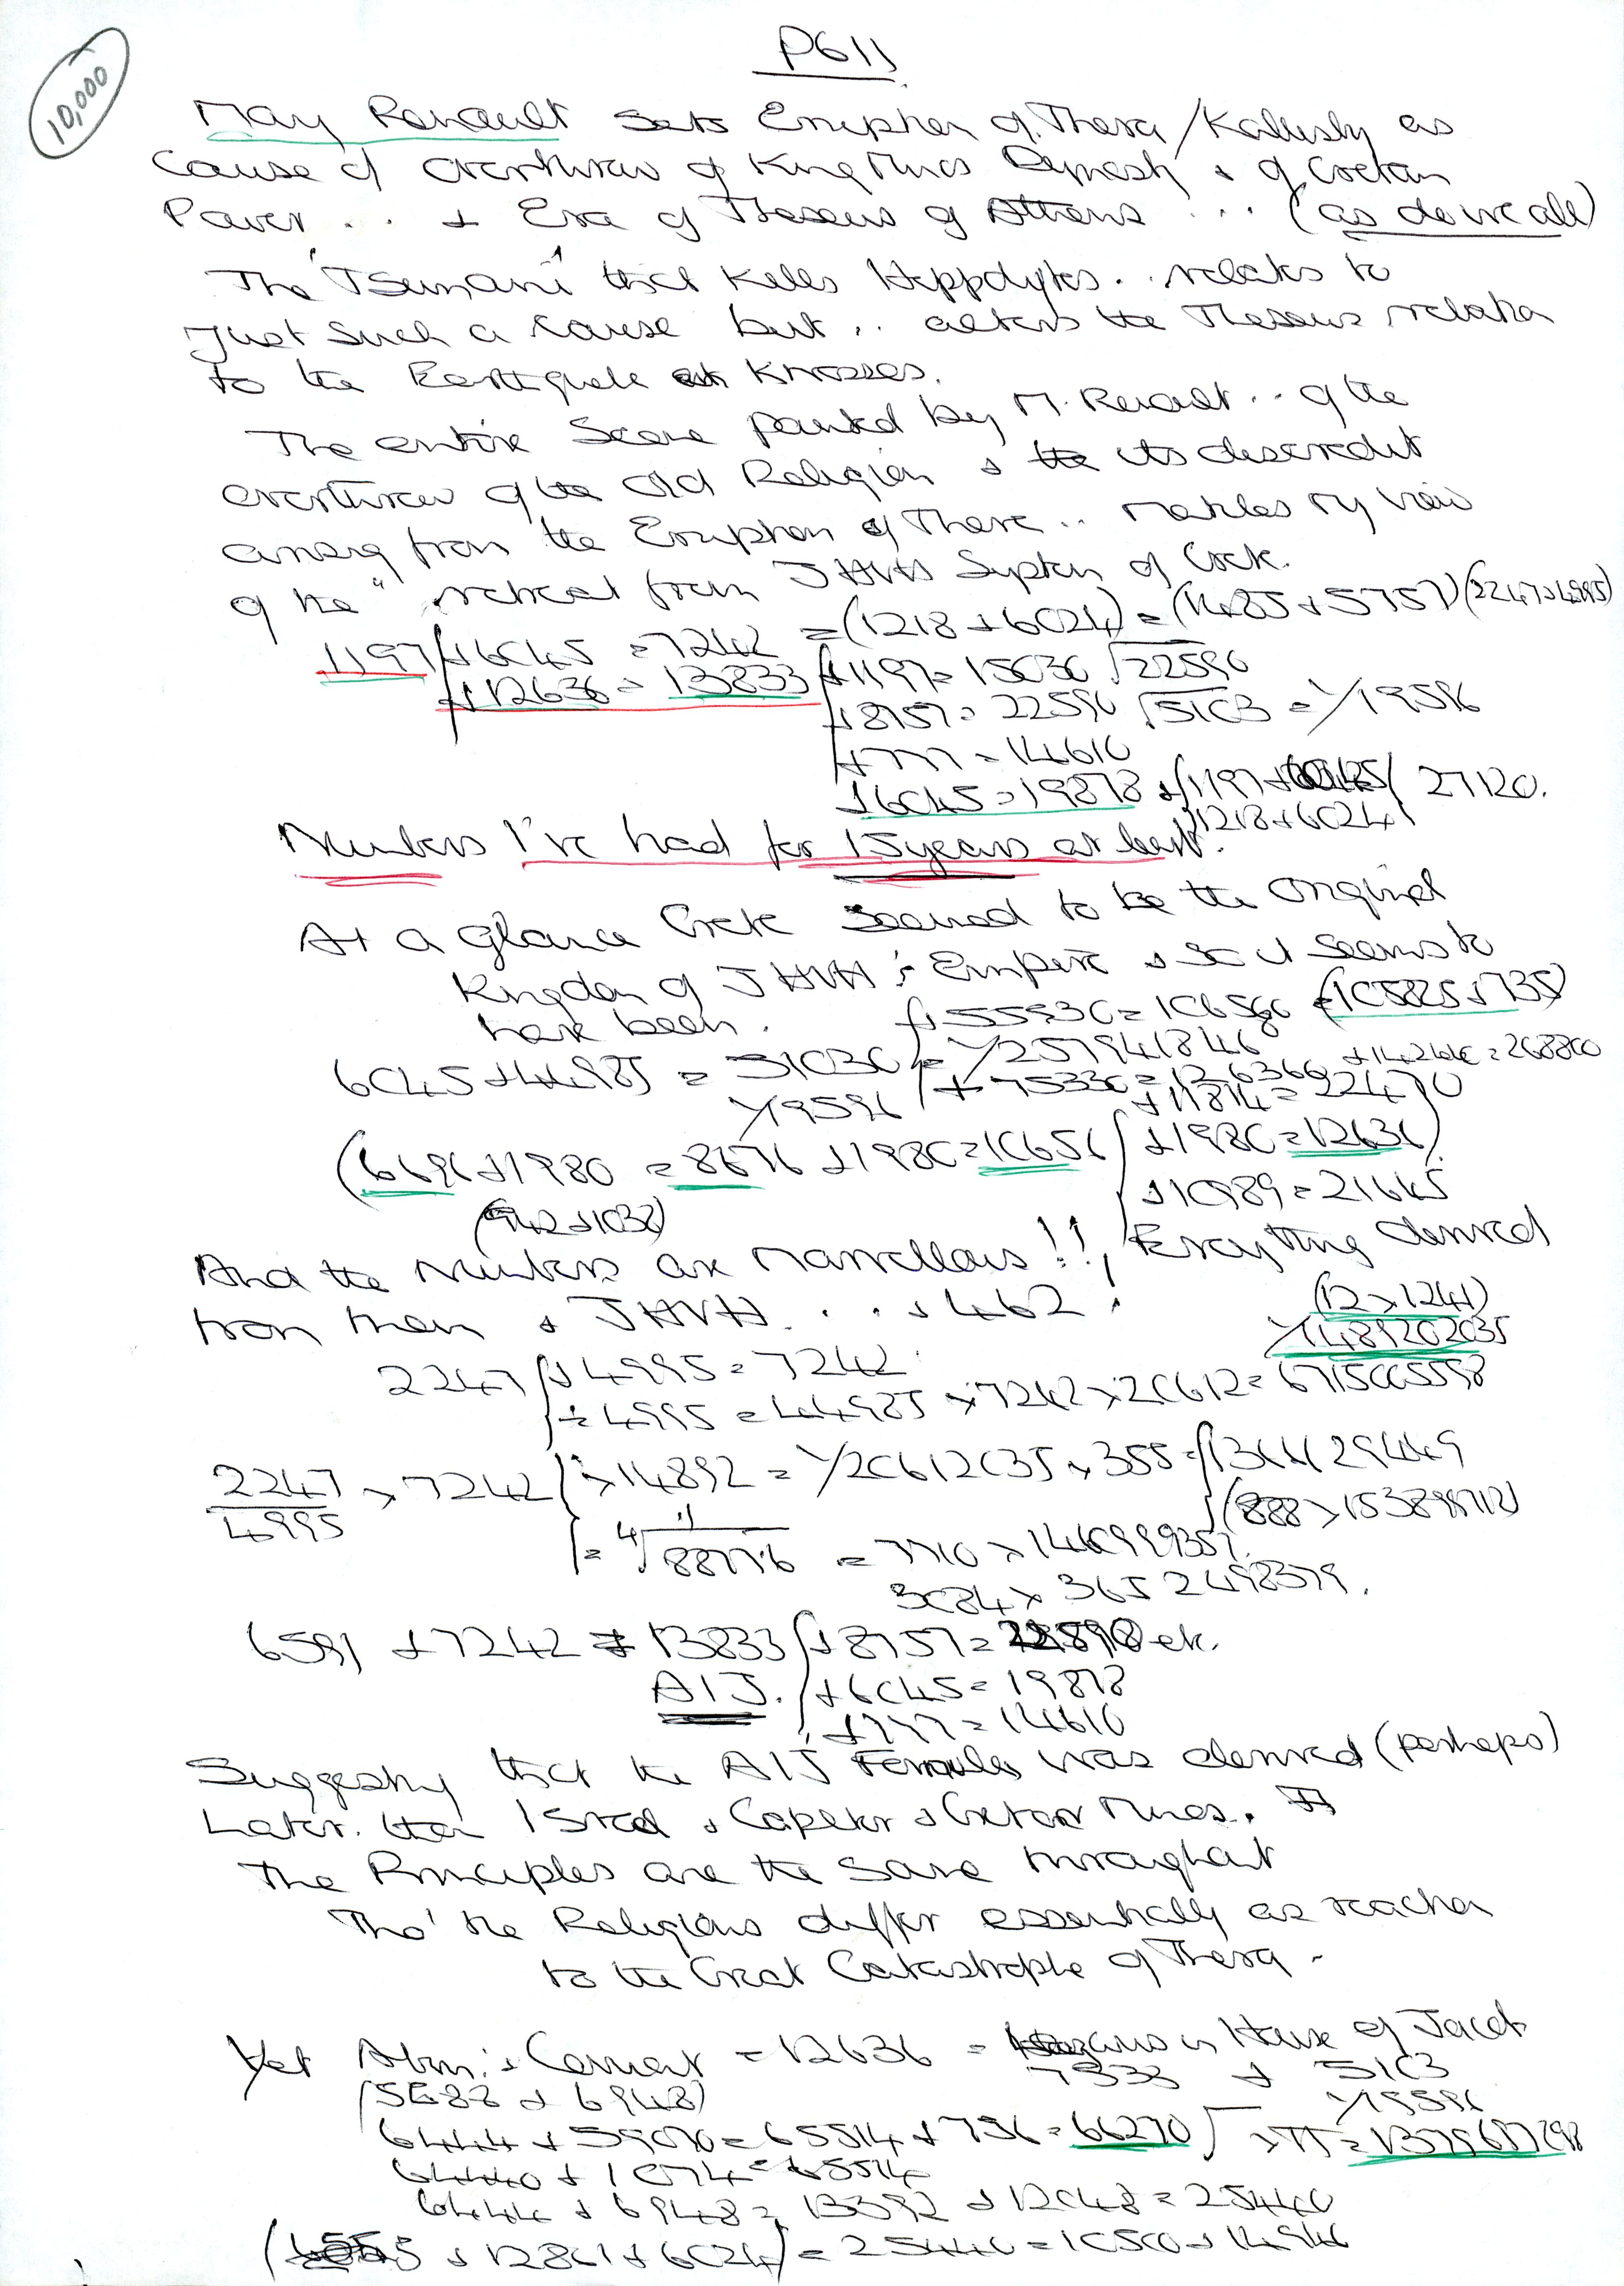 P611
10,000
Mary Renault sets Eruption of Thera/Kallisty as
Cause of overthrow of King Minos Dynasty & of Cretan
Power... + Era of Theseus of Athens ... (as do we all)
The "Tsunami" that kills Hippolytos.. relates to
Just such a cause but.. alters the Theseus relation
to the Earthquake at Knossos.
The entire Scene painted by M. Renault.. of the
overthrow of the Old Religion & its discredit
arising from the Eruption of Thera.. matches my view
of the "retreat from JHVH System of Crete.
1197 +6045 = 7242 = (1218+6024) = (1485+5757) (2247+4995)
+12636 = 13833 +1197 = 15030 √22590
+8757 = 22590 √5103 = 1/19596
+777 = 14610
+6045 = 19878 +(1197+6045) 27120.
1218+6024
Numbers I've had for 15 years at least.
At a glance Crete seemed to be the original
Kingdom of JHVH & Empire & so it seems to
have been. +55530 = 106560 (105825+735)
6045+44985 = 51030 = 1/2579418846
1/19596 +75330 = 126360 +142440 = 268800
+11814 = 22470
(6696+1980 = 8676 +1980 = 10656 +1980 = 12636)
(942+1038) +10989 = 21645
And the Numbers are marvellous!!, Everything derived
from them & JHVH... & 462!
(12 x 1241)
1/1489202035
2247 +4995 = 7242
÷4995 = 44985 x 7242 x 20612 = 6715005558
2247/4995 x 7242 x 14892 = 1/20612035 x 355 = 1366429449
(888 x 153899112)
= 4√ 1/88776 = 7710 x 146999357.
3084 x 3652498379.
6591 + 7242 = 13833 +8757 = 22590 etc.
AIJ. +6045 = 19878
+777 = 14610
Suggesting that the AIJ Formulas was derived (perhaps)
Later. than Israel & Capehtor & Cretan Minos.
The Principles are the same throughout
Tho' the Religions differ essentially as reaction
to the Great Catastrophe of Thera.
Yet Abm: & Covenant = 12636 = in House of Jacob
(5688 + 6948) 7533 + 5103
1/19596
6444 + 59070 = 65514 + 756 = 66270 √ x π = 1379687298
64440 + 1074 = 65514
6444 + 6948 = 13392 + 12048 = 25440
( + 12861 + 6024) = 25446 = 10500 + 14946